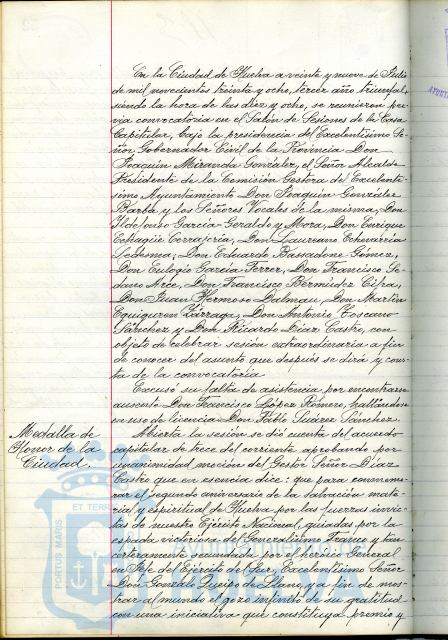 En la Ciudad de Huelva a veinte y nueve de Julio
de mil novecientos treinta y ocho, tercer año triunfal,
siendo la hora de las diez y ocho, se reunieron pre-
via convocatoria en el Salón de Sesiones de la Casa
Capitular, bajo la presidencia del Excelentísimo Se-
ñor Gobernador Civil de la Provincia Don
Joaquín Miranda González, el Señor Alcalde
Presidente de la Comisión Gestora del Excelentí-
simo Ayuntamiento Don Joaquín González
Barba y los Señores Vocales de la misma, Don
Ildefonso García-Geraldo y Mora, Don Enrique
Echagüe Cerrajería, Don Laureano Echevarría
Ledesma, Don Eduardo Bassadone Gómez,
Don Eulogio García Ferrer, Don Francisco Se-
dano Arce, Don Francisco Bermúdez Cifra,
Don Juan Hermoso Dalmau, Don Martín
Equiguren Zárraga, Don Antonio Toscano
Sánchez y Don Ricardo Díaz Castro, con
objeto de celebrar sesión extraordinaria a fin
de conocer del asunto que después se dirá y cons-
ta de la convocatoria
Excusó su falta de asistencia por encontrarse
ausente Don Francisco López Romero, hallándose
en uso de licencia Don Pablo Suárez Sánchez.
Medalla de
Honor de la
Ciudad.
Abierta la sesión se dió cuenta del acuerdo
capitular de trece del corriente aprobando por
unanimidad moción del Gestor Señor Díaz
Castro que en esencia dice: que para conmemo-
rar el segundo aniversario de la salvación mate-
rial y espiritual de Huelva por las fuerzas invic-
tas de nuestro Ejército Nacional, guiadas por la
espada victoriosa del Generalísimo Franco y tan
certeramente secundada por el heroico General
en Jefe del Ejército del Sur, Excelentísimo Señor
Don Gonzalo Queipo de Llano, y a fin de mos-
trar al mundo el gozo infinito de su gratitud
con una iniciativa que constituya premio y
PORTUS MARIS
ET TERRAE